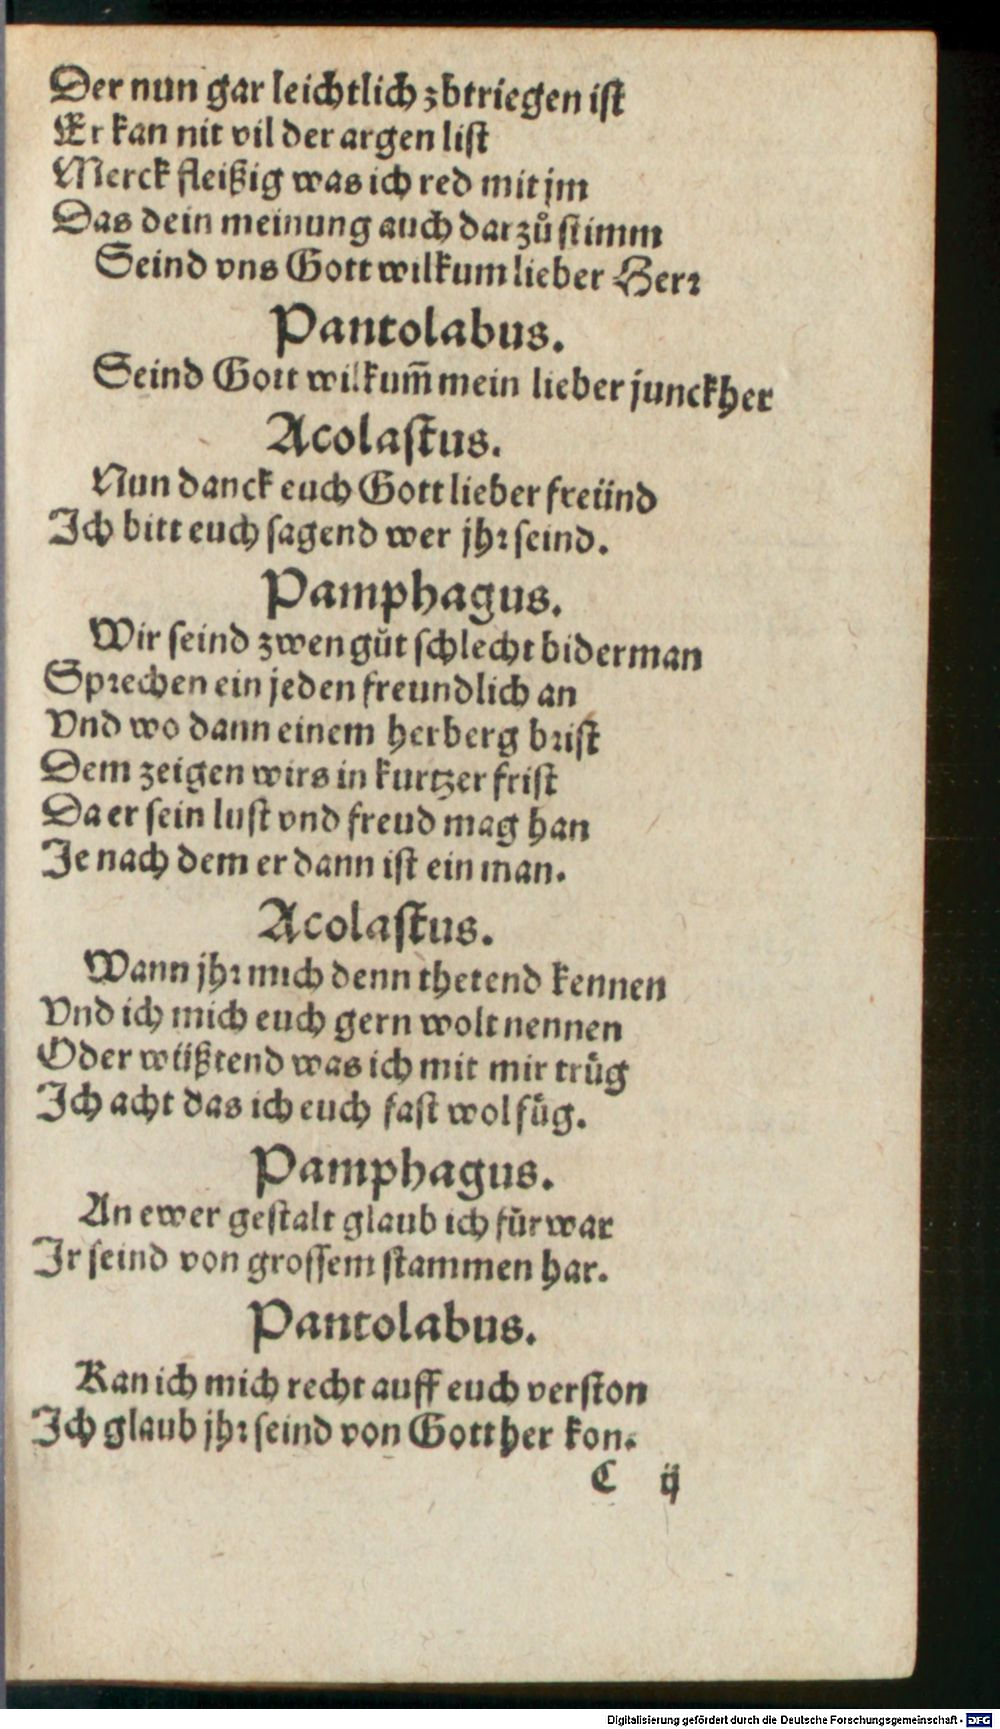 Der nun gar leichtlich zbtriegen ist
Er kan nit vil der argen list
Merck fleißig was ich red mit jm
Das dein meinung auch darzů stimm
Seind vns Gott wilkum lieber Herr
Pantolabus.
Seind Gott wilkum̄ mein lieber junckher
Acolastus.
Nun danck euch Gott lieber freünd
Ich bitt euch sagend wer jhr seind.
Pamphagus.
Wir seind zwen gůt schlecht biderman
Sprechen ein jeden freundlich an
Vnd wo dann einem herberg brist
Dem zeigen wirs in kurtzer frist
Da er sein lust vnd freud mag han
Je nach dem er dann ist ein man.
Acolastus.
Wann jhr mich denn thetend kennen
Vnd ich mich euch gern wolt nennen
Oder wüßtend was ich mit mir trüg
Ich acht das ich euch fast wol füg.
Pamphagus.
An ewer gestalt glaub ich fürwar
Ir seind von grossem stammen har.
Pantolabus.
Kan ich mich recht auff euch verston
Ich glaub jhr seind von Gott her kon.
C ij
Digitalisierung gefördert durch die Deutsche Forschungsgemeinschaft - DFG